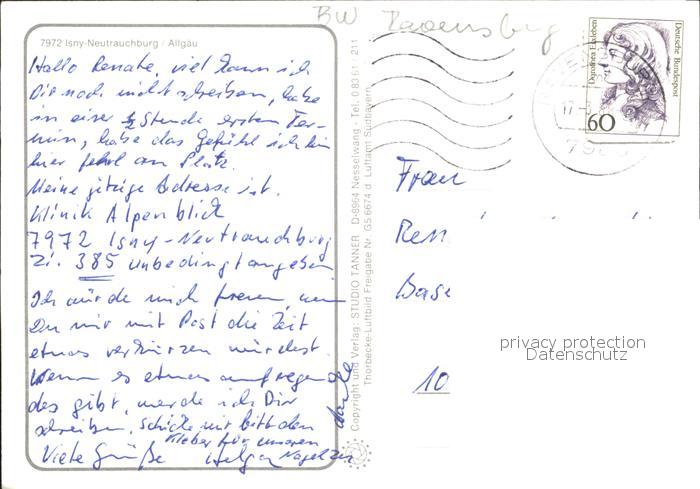 BW Ravensburg
7972 Isny-Neutrauchburg / Allgäu
Hallo Renate, viel kann ich
Dir noch nicht schreiben, habe
in einer ½ Stunde ersten Ter-
min, habe das Gefühl ich bin
hier fehl am Platz.
Meine jetzige Adresse ist.
Klinik Alpenblick
7972 Isny-Neutrauchburg
Zi. 385 unbedingt angeben
Ich würde mich freuen, wenn
Du mir mit Post die Zeit
etwas verkürzen würdest.
Wenn es etwas aufregen-
des gibt, werde ich Dir
schreiben, Schicke mir bitte den
Kleber für unseren
Viele Grüße Helga
danke
Copyright und Verlag: STUDIO TANNER D-8964 Nesselwang - Tel. 0 83 61 / 211
Thorbecke-Luftbild Freigabe Nr. GS 6674 d. Luftamt Südbayern
Deutsche Bundespost
60
17.
Frau
Ren
Base
10
privacy protection
Datenschutz